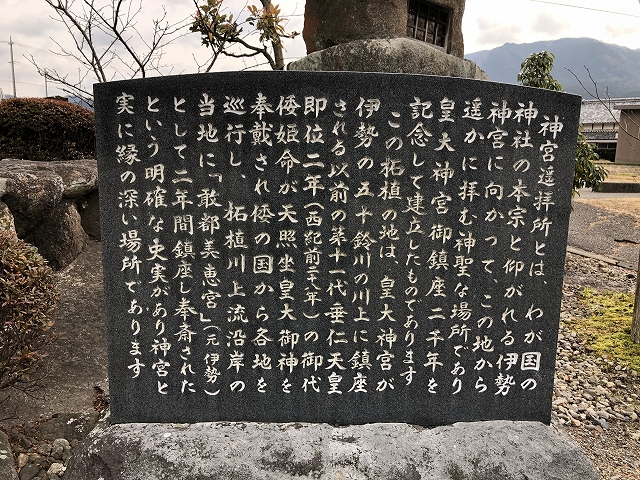 神宮遥拝所とは、わが国の
神社の本宗と仰がれる伊勢
神宮に向かって、この地から
遥かに拝む神聖な場所であり
皇大神宮御鎮座二千年を
記念して建立したものであります
この柘植の地は、皇大神宮が
伊勢の五十鈴川の川上に鎮座
される以前の第十一代・垂仁天皇
即位二年(西紀前二八年)の御代
倭姫命が天照坐皇大御神を
奉戴され倭の国から各地を
巡行し、柘植川上流沿岸の
当地に「敢都美恵宮」(元伊勢)
として二年間鎮座し奉斎された
という明確な史実があり神宮と
実に縁の深い場所であります